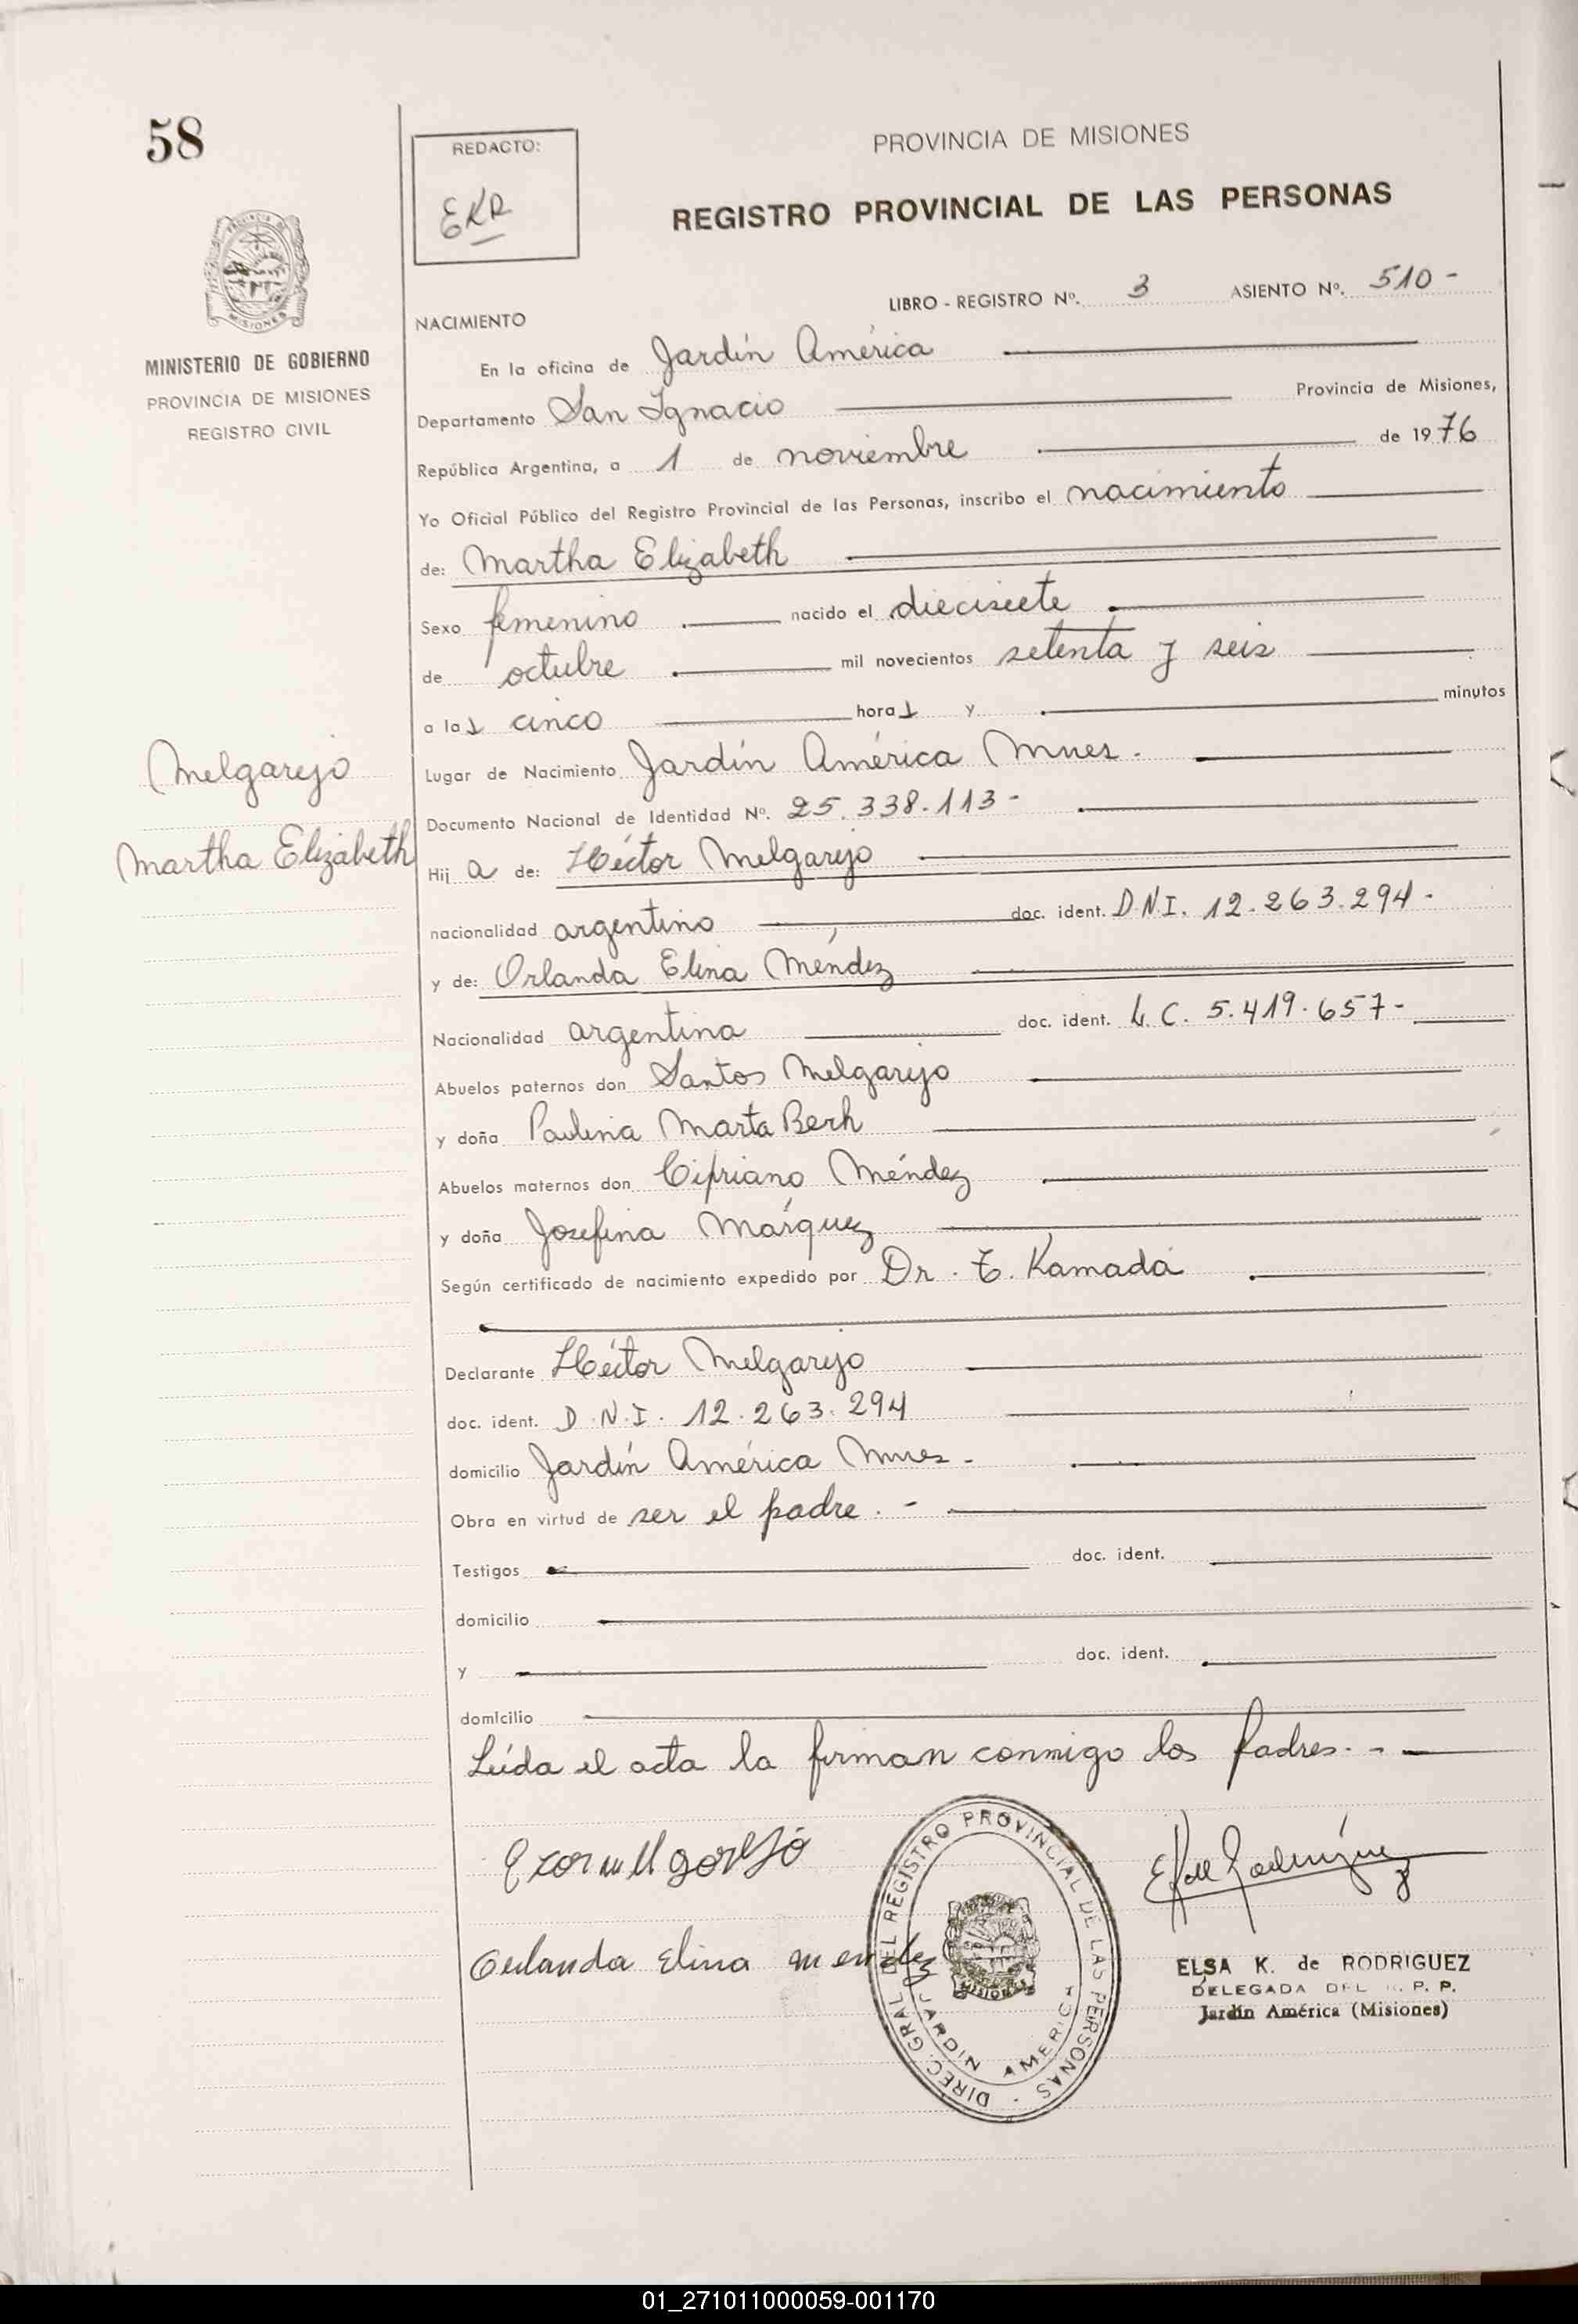 58
REDACTO:
EKR
PROVINCIA DE MISIONES
REGISTRO PROVINCIAL DE LAS PERSONAS
MISIONES
MINISTERIO DE GOBIERNO
PROVINCIA DE MISIONES
REGISTRO CIVIL
LIBRO - REGISTRO Nº. 3 ASIENTO Nº. 510 -
NACIMIENTO
En la oficina de Jardín América
Departamento San Ignacio Provincia de Misiones,
República Argentina, a 1 de noviembre de 1976
Yo Oficial Público del Registro Provincial de las Personas, inscribo el nacimiento
de: Martha Elizabeth
Sexo femenino nacido el diecisiete
de octubre mil novecientos setenta y seis
a las cinco horas y minutos
Lugar de Nacimiento Jardín América Mnes.
Melgarejo
Martha Elizabeth
Documento Nacional de Identidad Nº. 25.338.113-
Hija de: Héctor Melgarejo
nacionalidad argentino doc. ident. D.N.I. 12.263.294-
y de: Orlanda Elina Méndez
Nacionalidad argentina doc. ident. L.C. 5.419.657-
Abuelos paternos don Santos Melgarejo
y doña Paulina Marta Berh
Abuelos maternos don Cipriano Méndez
y doña Josefina Márquez
Según certificado de nacimiento expedido por Dr. T. Kamada
Declarante Héctor Melgarejo
doc. ident. D.N.I. 12.263.294
domicilio Jardín América Mnes -
Obra en virtud de ser el padre. -
Testigos doc. ident.
domicilio
y doc. ident.
domicilio
Leída el acta la firman conmigo los padres. -
Orlanda Elina mendez
DIREC. GRAL DEL REGISTRO PROVINCIAL DE LAS PERSONAS
MISIONES
JARDIN AMERICA
ELSA K. de RODRIGUEZ
DELEGADA DEL P. P.
Jardín América (Misiones)
01_271011000059-001170